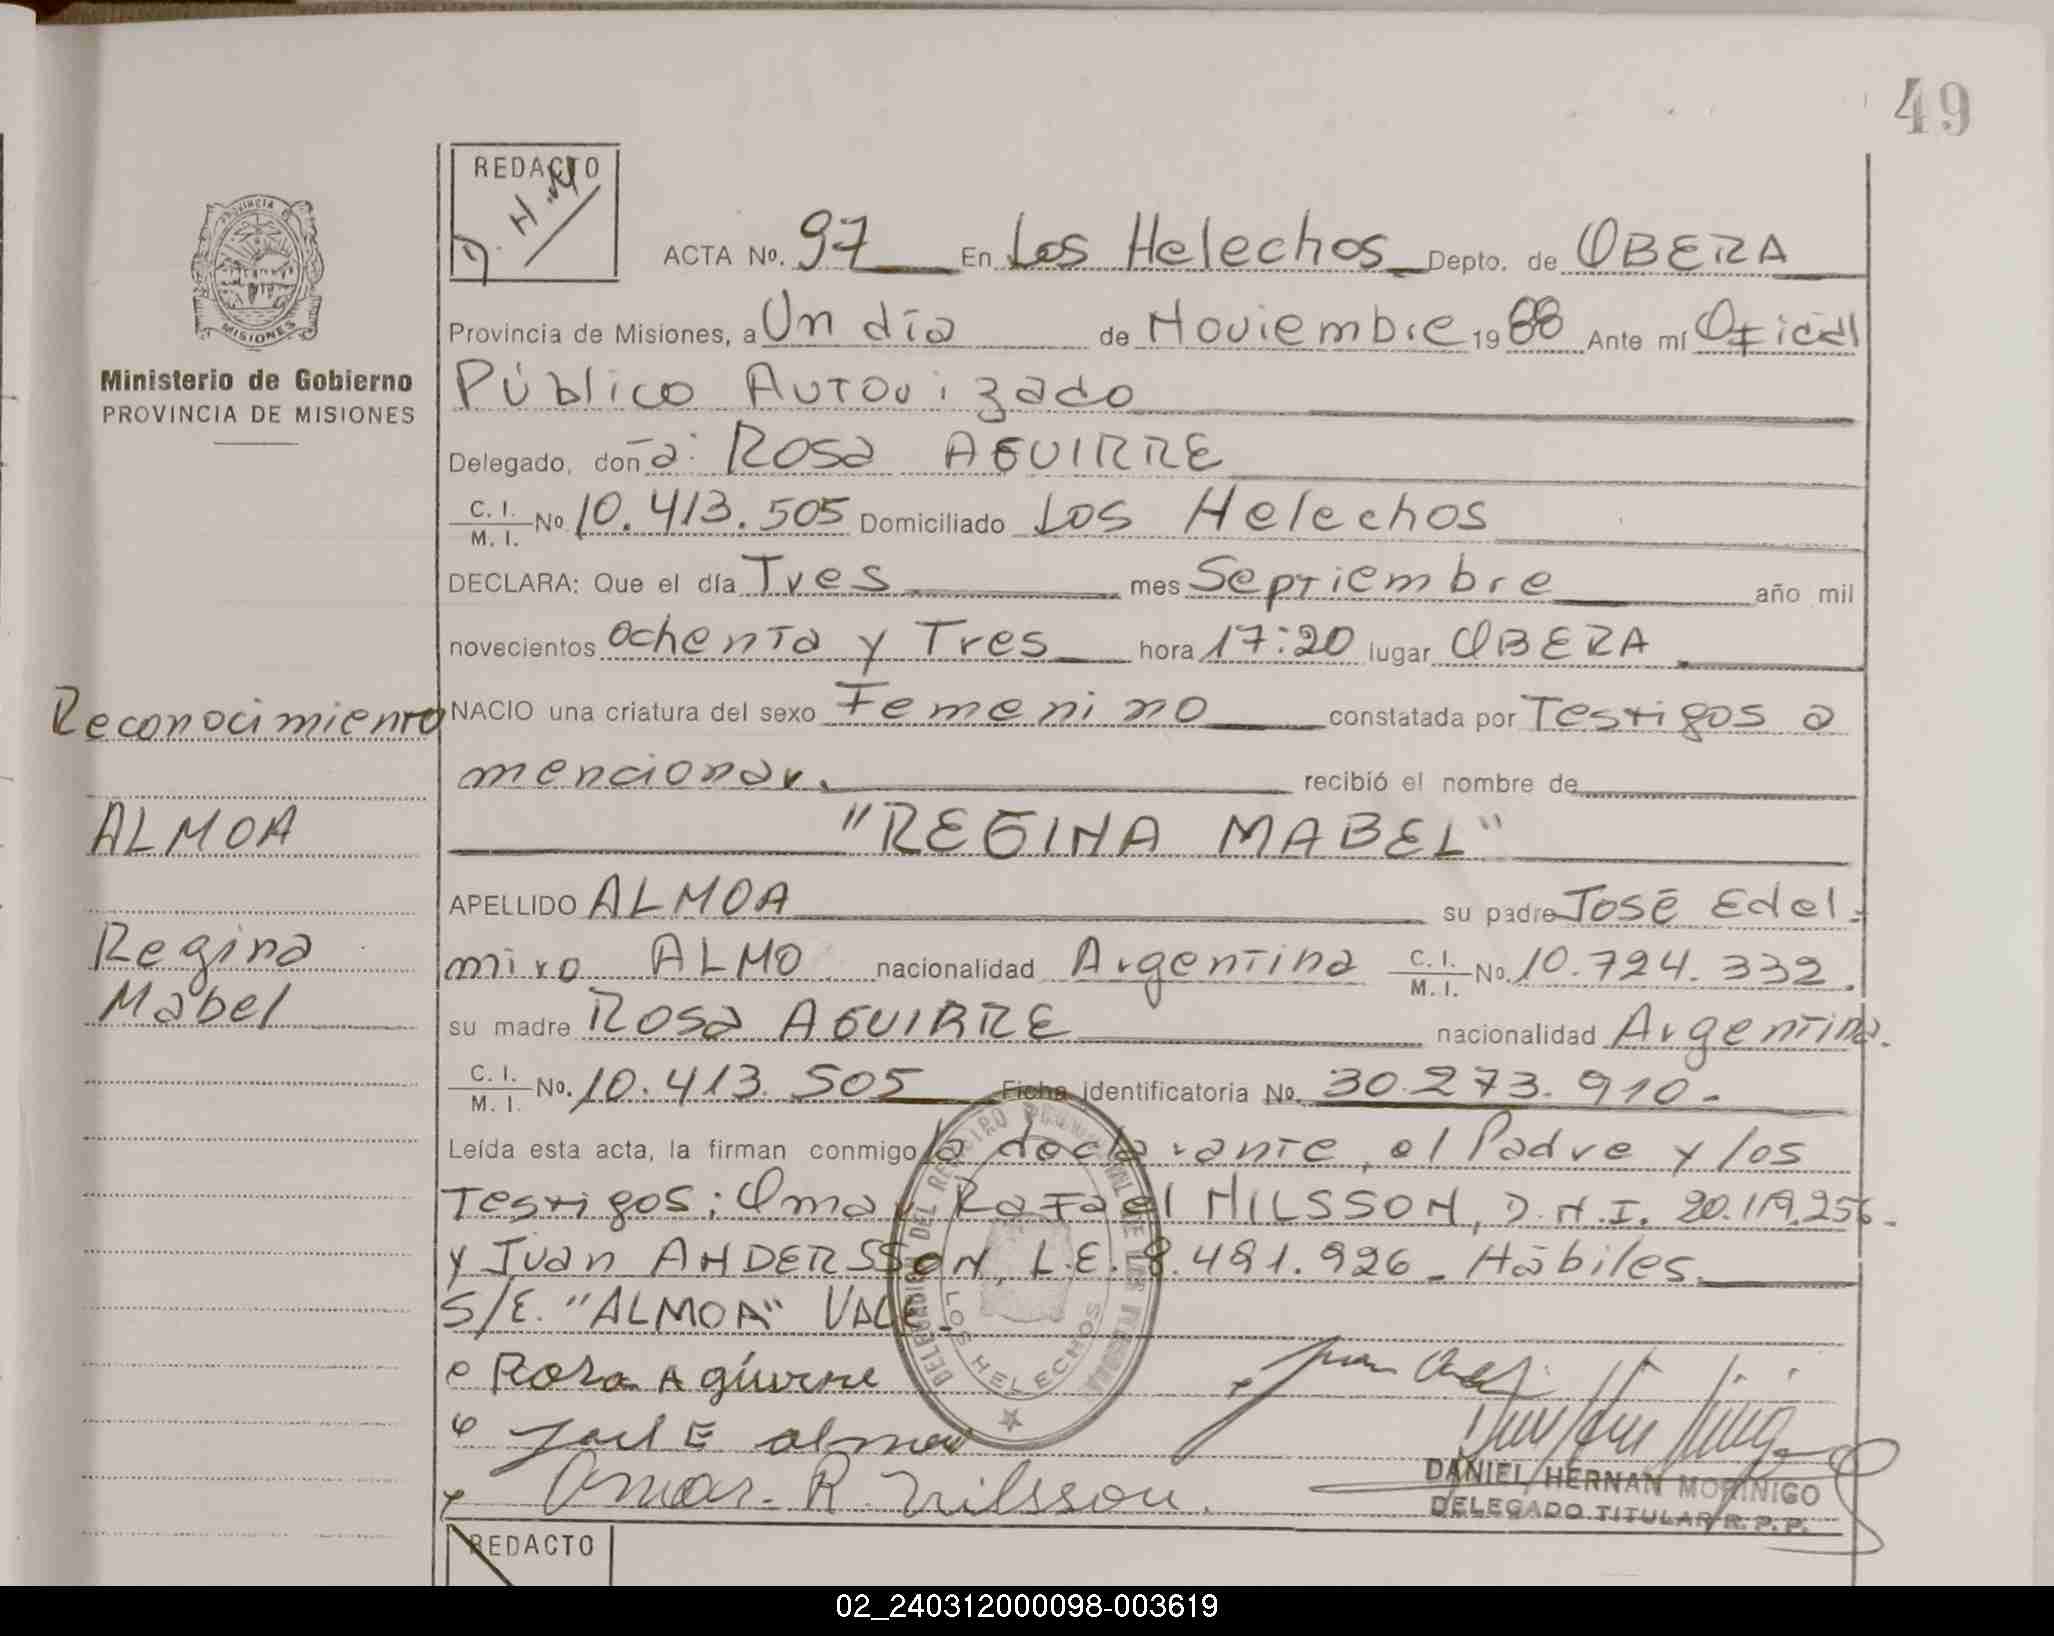 49
REDACTO
D. H. M
PROVINCIA DE
MISIONES
Ministerio de Gobierno
PROVINCIA DE MISIONES
ACTA No. 97 En Los Helechos Depto. de OBERA
Provincia de Misiones, a Un día de Noviembre 1988 Ante mí Oficial
Público Autorizado
Delegado, don a: Rosa AGUIRRE
C. I. / M. I. No. 10.413.505 Domiciliado Los Helechos
DECLARA: Que el día Tres mes Septiembre año mil
novecientos ochenta y Tres hora 17:20 lugar OBERA
Reconocimiento NACIO una criatura del sexo Femenino constatada por Testigos a
mencionar. recibió el nombre de
ALMOA "REGINA MABEL"
APELLIDO ALMOA su padre José Edel=
Regina miro ALMO nacionalidad Argentina C. I. / M. I. No. 10.724.332.
Mabel su madre Rosa AGUIRRE nacionalidad Argentina.
C. I. / M. I. No. 10.413.505 Ficha identificatoria No. 30.273.910.-
Leída esta acta, la firman conmigo la declarante, el Padre y los
Testigos: Omar Rafael NILSSON, D.N.I. 20.119.256-
y Juan ANDERSSON, L.E. 8.491.926- Hábiles.
S/E. "ALMOA" VALE.
LOS HELECHOS
Rosa Aguirre
José E almoa
Omar R. Nilsson.
DANIEL HERNAN MORINIGO
DELEGADO TITULAR R. P. P.
REDACTO
02_240312000098-003619